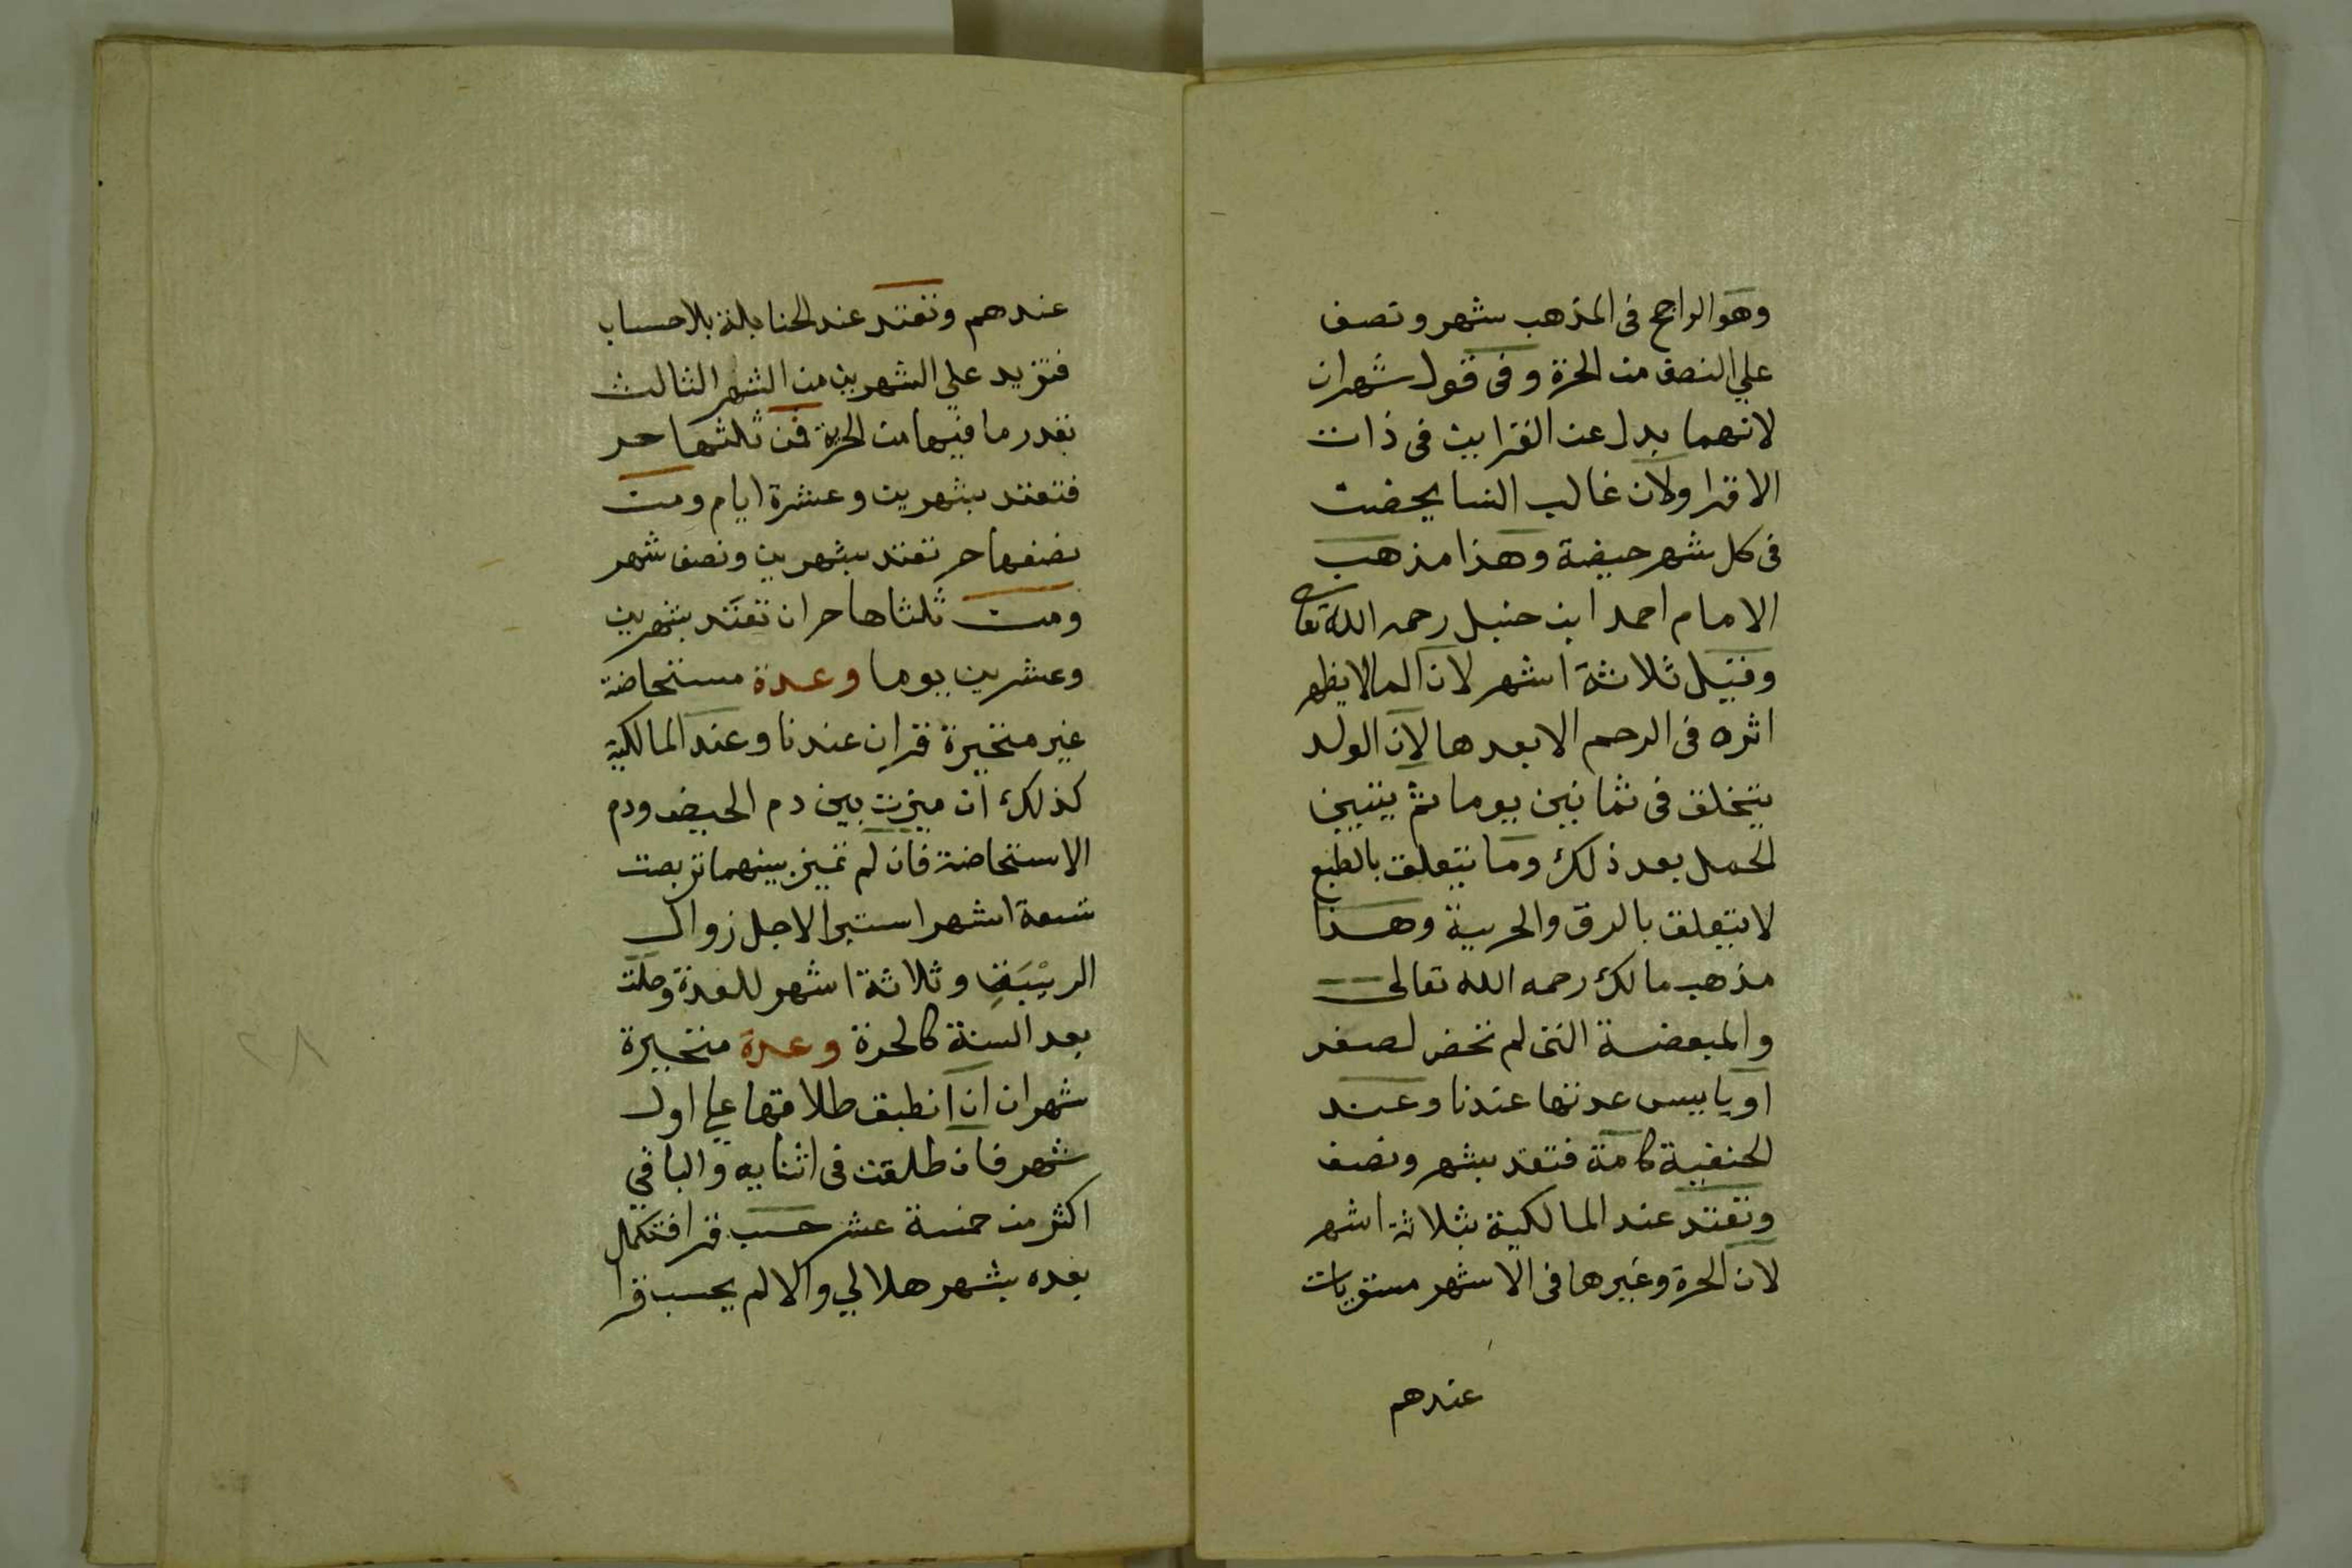 وهو الراجح فى المذهب شهر ونصف
علي النصف من الحرة وفى قول شهران
لانهما بدل عن القرايين فى ذات
الاقرا ولان غالب النسا يحضن
فى كل شهر حيضة وهذا مذهب
الامام احمد ابن حنبل رحمه الله تعالى
وقيل ثلاثة اشهر لان الما لا يظهر
اثره فى الرحم الا بعدها لان الولد
يتخلق فى ثمانين يوما ثم يتبين
الحمل بعد ذلك وما يتعلق بالطبع
لا يتعلق بالرق والحرية وهذا
مذهب مالك رحمه الله تعالى
والمبعضة التى لم تحض لصغر
او يا ييس عدتها عندنا وعند
الحنفية كامة فتعتد بشهر ونصف
وتعتد عند المالكية بثلاثة اشهر
لان الحرة وغيرها فى الاشهر مستويات
عندهم
عندهم وتعتد عند الحنابلة بالاحساب
فتزيد علي الشهرين من الشهر الثالث
بقدر ما فيها من الحرية فمن ثلثها حر
فتعتد بشهرين وعشرة ايام ومن
نصفها حر تعتد بشهرين ونصف شهر
ومن ثلثاها حران تعتد بشهرين
وعشرين يوما وعدة مستحاضة
غير متحيرة قران عندنا وعند المالكية
كذلك ان ميزت بين دم الحيض ودم
الاستحاضة فان لم تميز بينهما تربصت
تسعة اشهر استبرا لاجل زوال
الريبة وثلاثة اشهر للعدة وحلت
بعد السنة كالحرة وعدة متحيرة
شهران ان انطبق طلاقها علي اول
شهر فان طلقت فى اثنايه والباقي
اكثر من خمسة عشر حسب قرا فتكمل
بعده بشهر هلالي والا لم يحسب قرا
٢٨